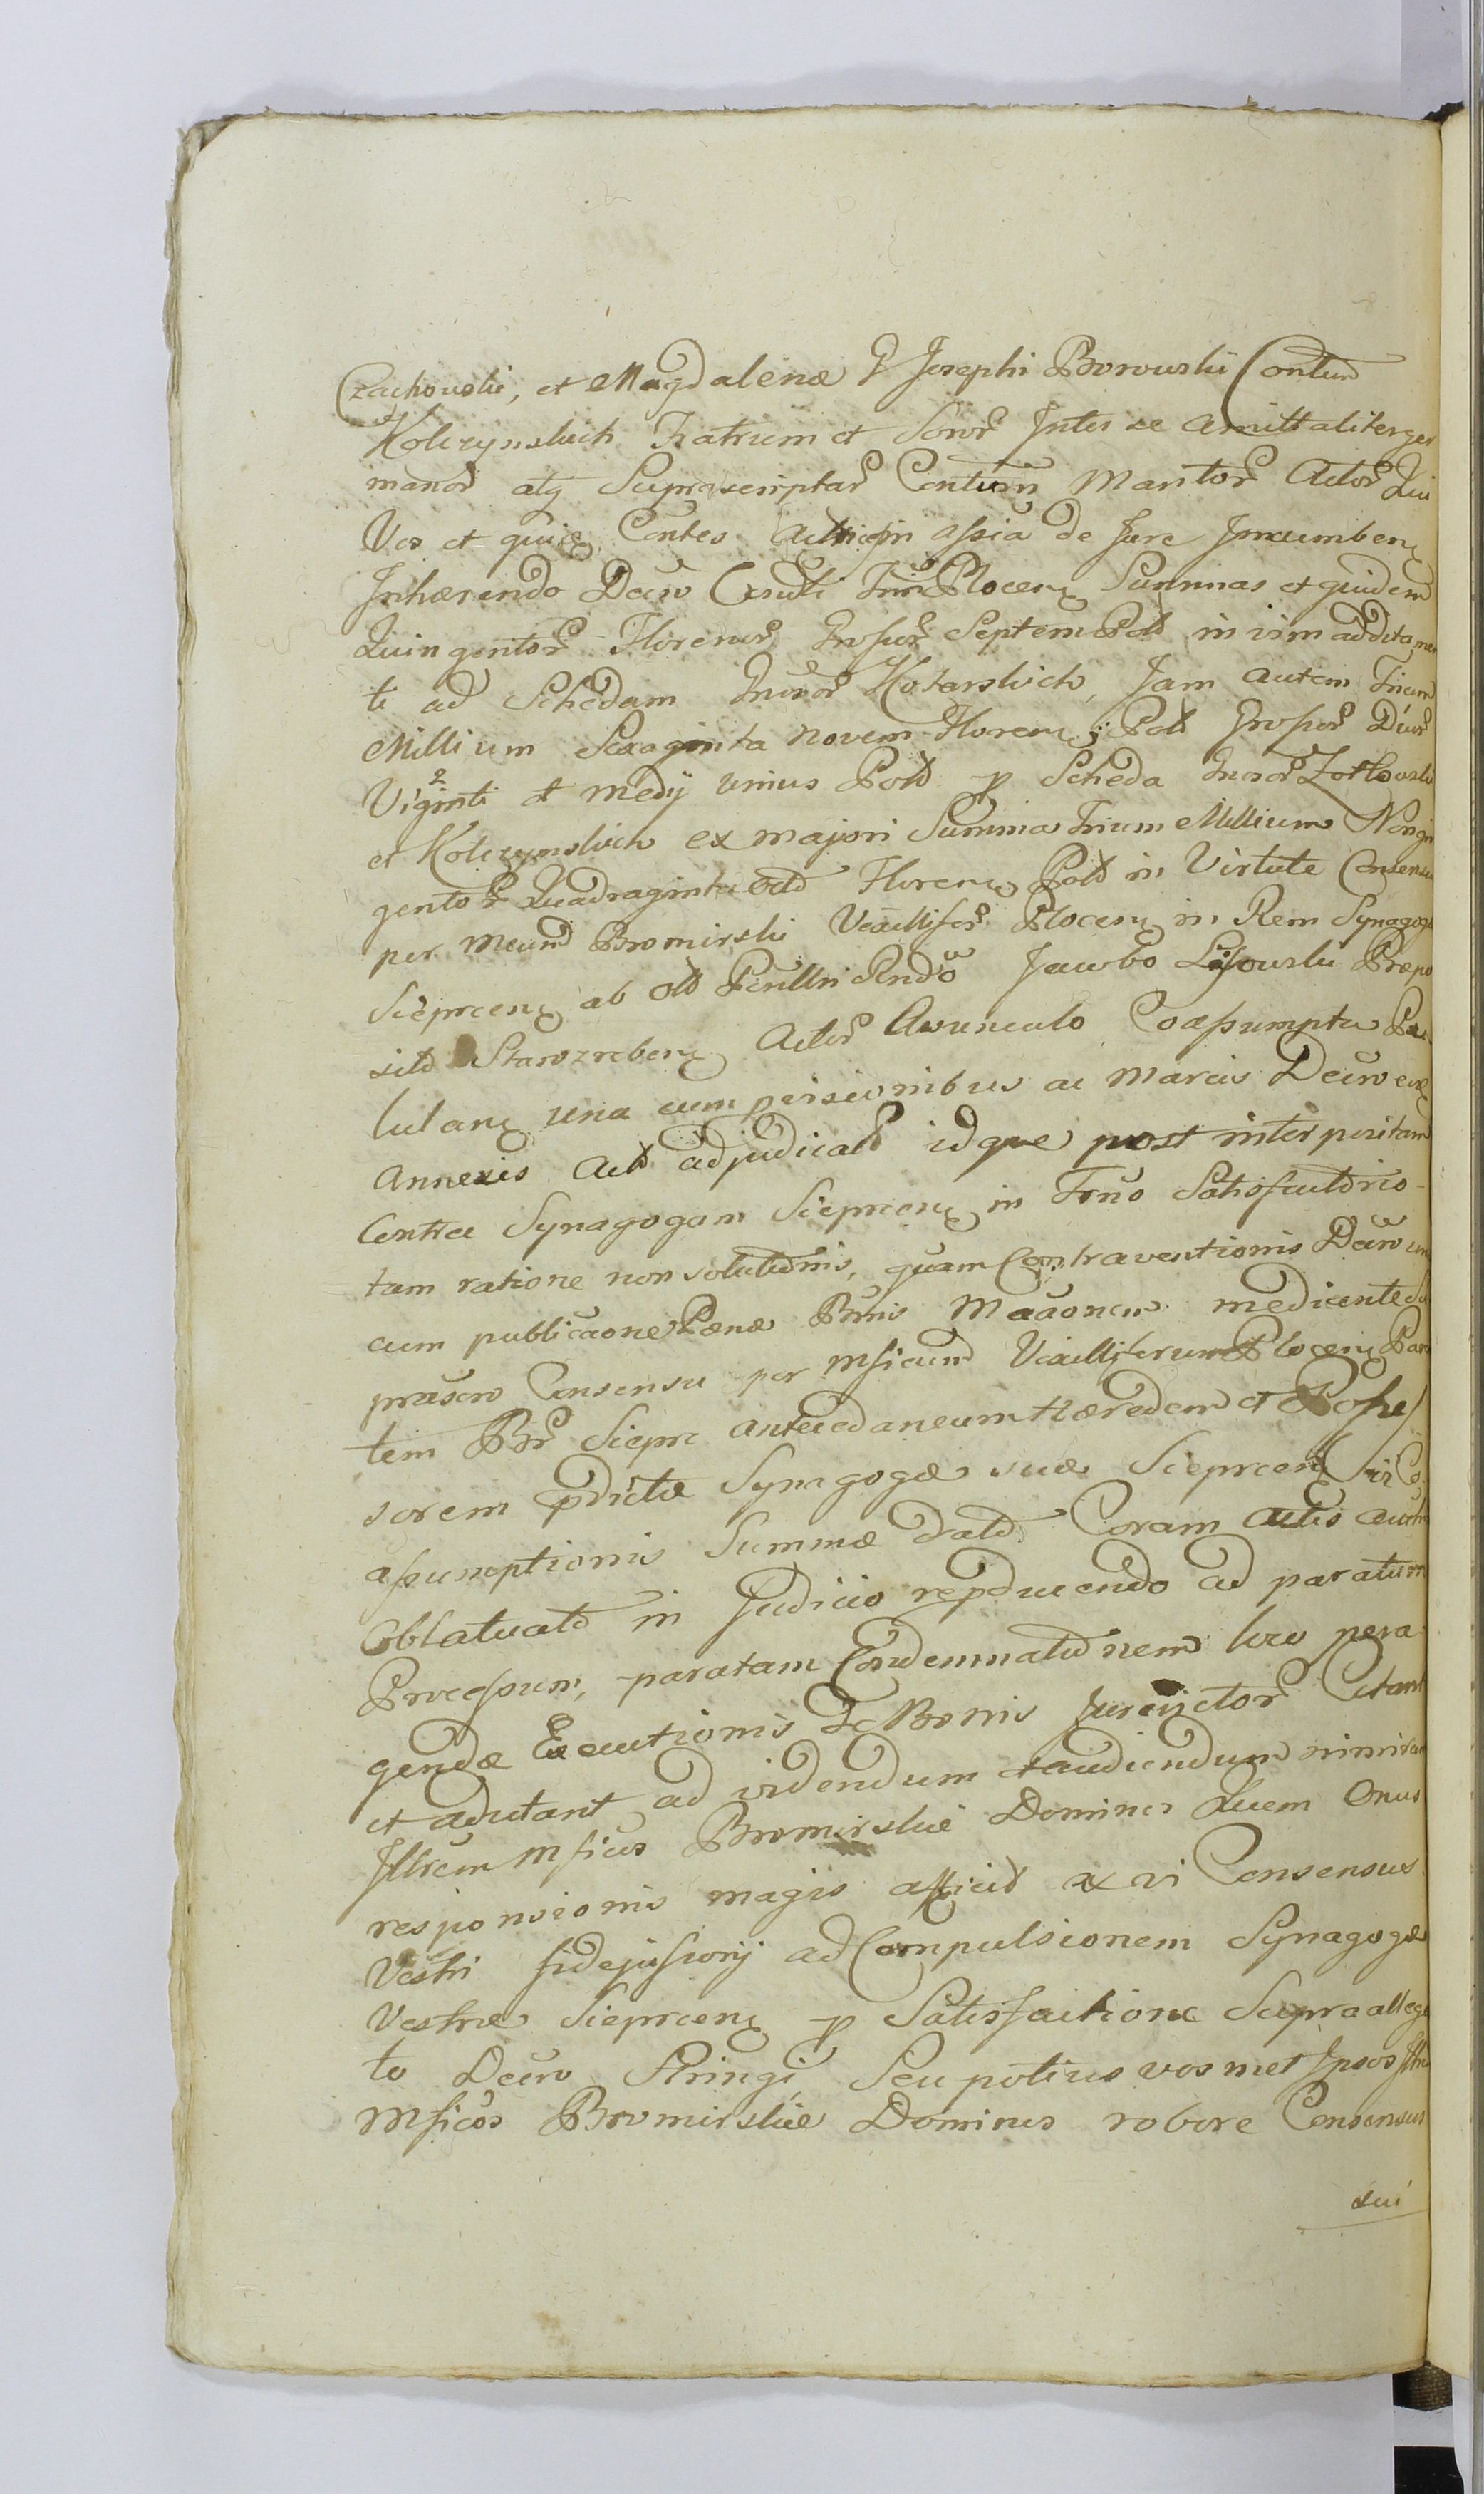 Czachowskie, et Magdalenæ G Josephi Borowski Contum
Kolczynskich Fratrum et Soror Inter se amittaliter ger
manor atq Suprascriptar Contum Maritor Actor Qui
Vos et quiq Contes de Jure Jncumbenq
Inhærendo Decro Plocenq Summas et quidem
Quingentor Florenor Grossor Septem Pold in vim addita men
ti ad Schedam Kotarskich, Jam autem Trium
Millium Sexaginta novem Florenq Pold Grossor Duor
Viginti et medij unius Pold p Scheda Zotkowski
et Kolczynskich ex majori Summa Trium Millium Nongin
gentor Quadraginta octo Florenq Pold in Virtute Consensu
per Mcum Bromirski Vexillifer Plocenq in Rem Synagoga
Sieprcenq ab old Rndo Jacobo Lisowski Præpo
sito Starozrebenq Actor Avunculo Coassumpta
lulanq una cum pensionibus ac Marcis Decro
Annexis Actd adjudicatd idque post interpositam
Contra Synagogam Sieprcenq in Trno Satisfactorio
tam ratione non solutionis, quam Contraventionis Decro
cum publicaone Pœnæ Bnnis Maaonem mediante
Consensu per Mficum Vexilliferum Plocenq
tem Br Sieprc antecedaneum Hæredem et Posses
sorem pdictæ Synagogæ suæ Sieprcenq vi Co
assumptionis Summæ datd Coram Actis
Oblatuatd in Judicio repducendo ad paratum
Processum, paratam Condemnationem loco pera
gendæ Executionis de Bonis Citant
et adcitant ad videndum et audiendum
Illrem Mficos Bromirskie Domines Quem Onus
responsionis magis afficit ex vi Consensus
Vestri fidejussorij ad Compulsionem Synagogæ
Vestræ Sieprcenq p Satisfactione Supra allega
to Decro Stringi, Seu potius vosmet Ipsos
Mficos Bromirskie Dominos robore Consensus
sui